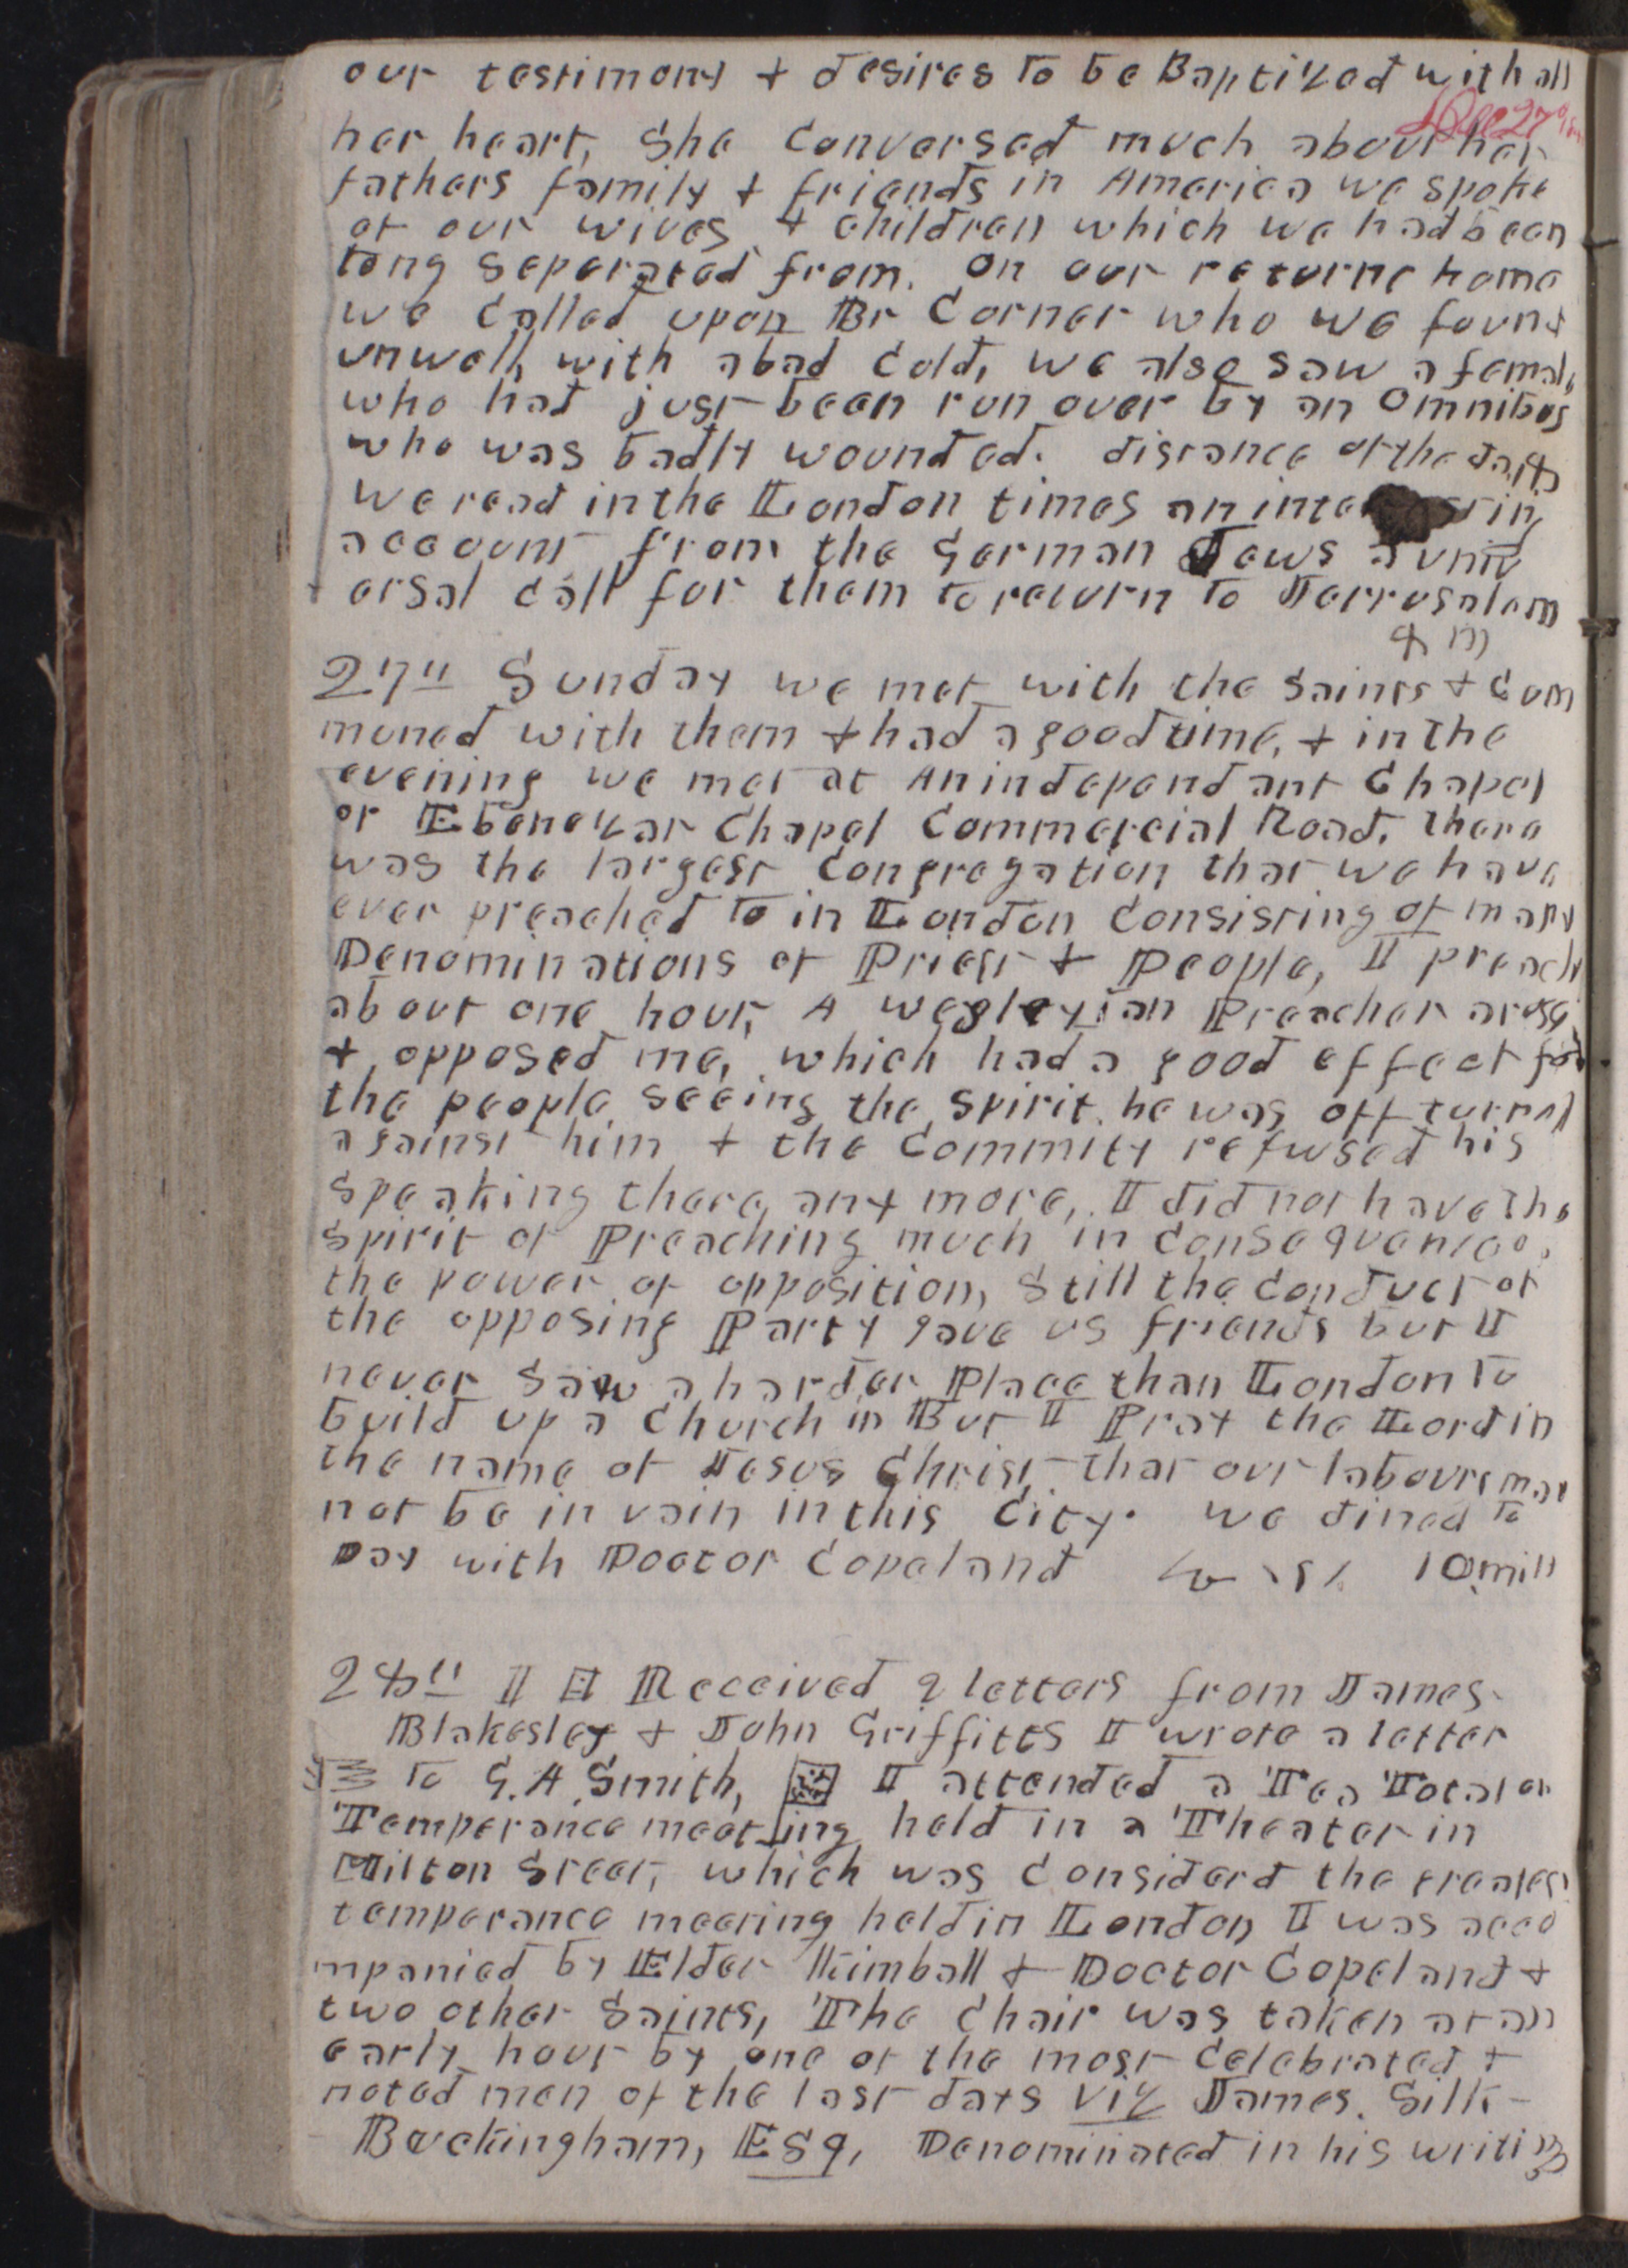 our testimony + desires to be Baptized with all
Dec 27th
her heart, She Conversed much about her
fathers family + friends in America we spoke
of our wives + children which we had been
long seperated from. on our returne home
we called upon Br Corner who we found
unwell with a bad Cold, we also saw a female
who had just been run over by an Omnibus
who was badly wounded. distance of the day
We read in the London times an interesting
account from the German Jews a univ
ersal call for them to return to Jerrusalem
4 m
27th Sunday we met with the Saints + Com
muned with them + had a good time, + in the
evening we met at An independant Chapel
or Ebenezar Chapel Commercial Road. there
was the largest Congregation that we have
ever preached to in London Consisting of many
Denominations of Priest + People, I preach
about one hour, A wesleyian Preacher arose
+ opposed me, which had a good effect for
the people seeing the spirit he was off turned
against him + the Commity refused his
speaking there any more, I did not have the
spirit of Preaching much in Consequence of
the power of opposition, Still the Conduct of
the opposing Party gave us friends but I
never saw a harder Place than London to
build up a Church in But I Pray the Lord in
the name of Jesus Christ that our labours may
not be in vain in this City. we dined to
Day with Doctor Copeland 10 mill
28th I Received 2 letters from James
Blakesley + John Griffitts I wrote a letter
to G. A. Smith, I attended a Tea Total or
Temperance meeting held in a Theater in
Milton Street, which was Considerd the greatest
temperance meering held in London I was acco
mpanied by Elder Kimball + Doctor Copeland +
two other Saints, The Chair was taken at an
early hour by one of the most Celebrated +
noted men of the last days viz James. Silk-
Buckingham, Esq, Denominated in his writing